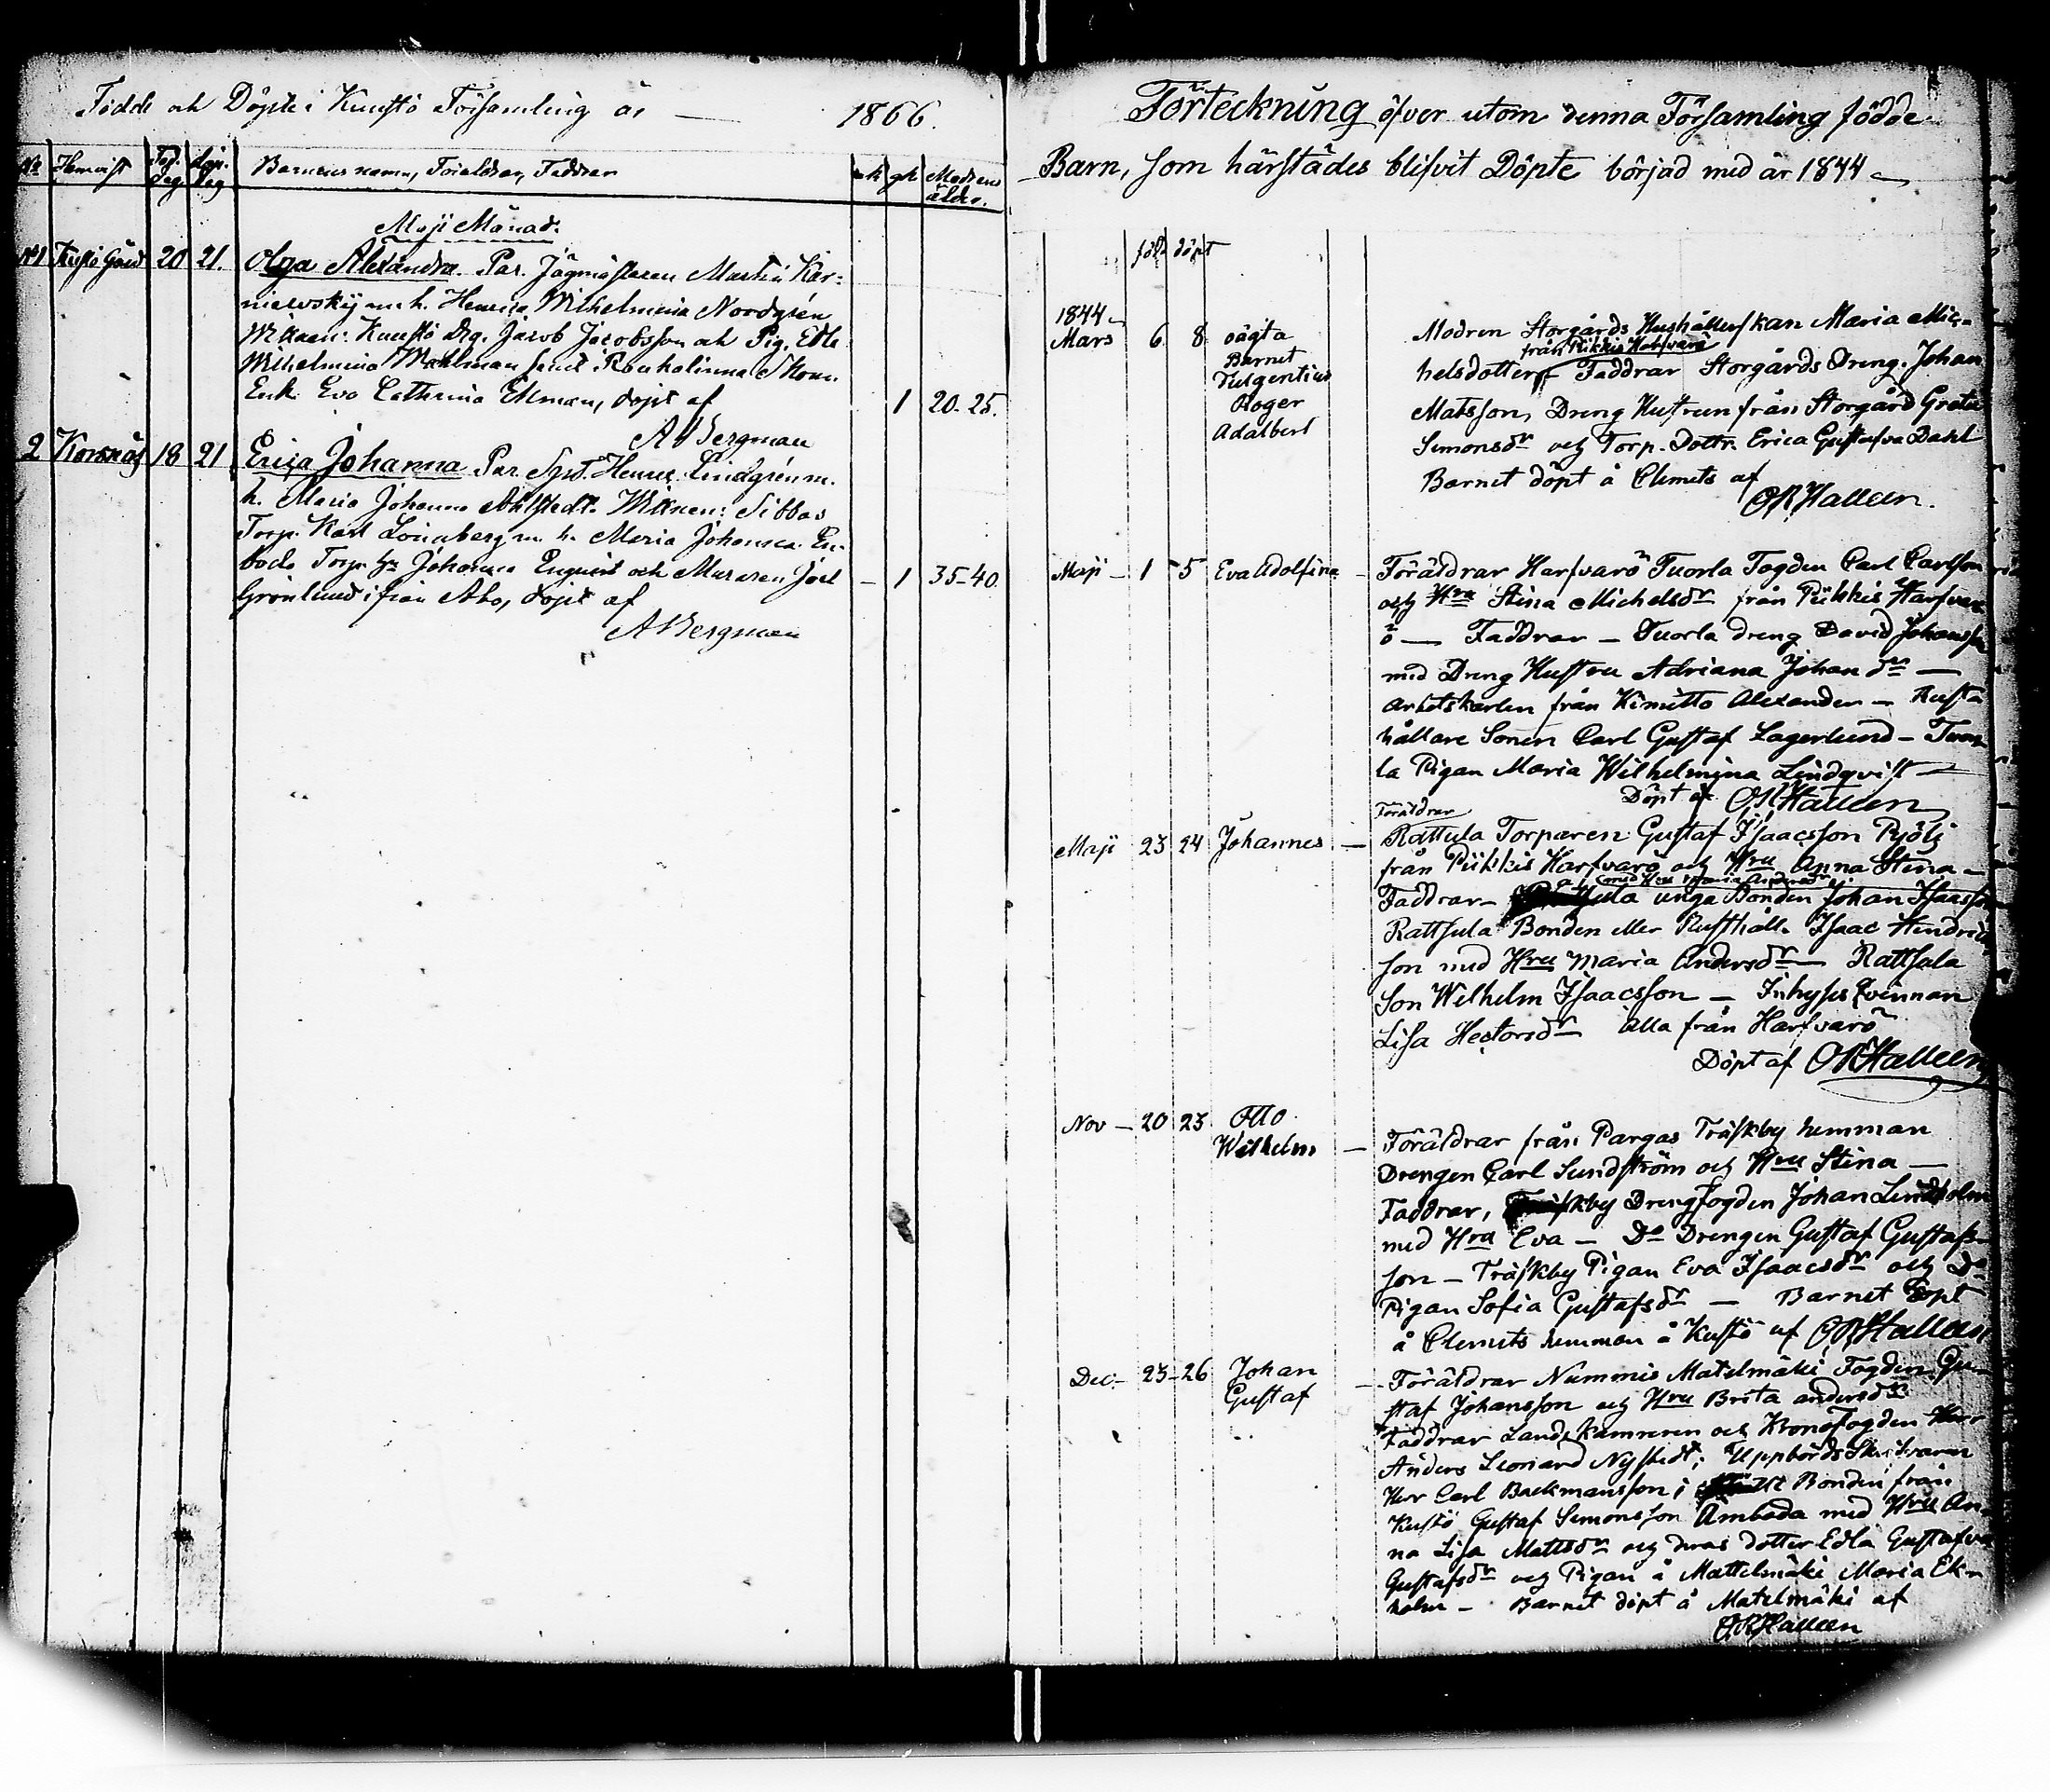 Födde och Döpte i Kuustö Församling år — 1866.
No Hemvist Föd. dag Döp. dag Barnens namn, Föräldrar, Faddrar mk qk Modrens ålder.
Maji Månad.
No 1 Kustö Gård 20 21. Olga Alexandra. Par. Jägmästaren Martin Kar-
niewskij m. h. Henrica Wilhelmina Nordgrén
Wittnen: Kuustö Drg. Jacob Jacobsson och Pig. Edla
Wilhelmina Wahlman samt Skom.
Enk. Eva Cathrina Ekman, döpt af 1 20-25.
A Bergman
2 Korsnäs 18 21 Erica Johanna Par. Henric Lindgrén m.
h. Maria Johanna Ahlstedt. Wittnen: Sibbas
Torp. Karl Lönnberg m. h. Maria Johansa. En-
boda Torp. Johanna Enqvist och Muraren Joel — 1 35-40.
Grönlund ifrån Åbo, döpt af
A Bergman
Förteckning öfver utom denna Församling födde
Barn, som härstädes blifvit Döpte börjad med år 1844
född döpt
1844
Mars 6 8 oägta Modren Storgårds Hushållerskan Maria Mic-
Barnet från Piikkis Harfvarö
Fulgentius helsdotter — Faddrar Storgårds Dreng. Johan
Roger Matsson, Dreng Hustrun från Storgård Greta
Adalbert Simonsdr och Torp. Dottr. Erica Gustafva Dahl
Barnet döpt å Clemets af
O R Halleen.
Maji — 1 5 Eva Adolfina — Föräldrar Harfvarö Tuorla Fogden Carl Carlsson
och Hru Stina Michelsdr från Piikkis Harfvar
ö — Faddrar — Tuorla dreng David Johansson
med Dreng Hustru Adriana Johan dr —
Arbetskarlen från Kimitto Alexander — Rust-
hållare Sonen Carl Gustaf Lagerlund — Tuor-
la Pigan Maria Wilhelmina Lindqvist —
Döpt af O R Halleen
Föräldrar
Maji 23 24 Johannes — Rattula Torparen Gustaf Isaacsson
från Piikkis Harfvarö och Hru Anna Stina —
med Hru Maria Andersdr
Faddrar — unga Bonden Johan Isaacsson
Rattsula Bonden eller Rusthåll. Isaac Hendric
son med Hru Maria Andersdr — Rattsula
Son Wilhelm Isaacsson — Inhyses Qvinnan
Lisa Hectorsdr Alla från Harfvarö
Döpt af O R Halleen
Nov — 20 23 Otto
Wilhelm — Föräldrar från Pargas Träskby hemman
Drengen Carl Sundström och Hru Stina —
Faddrar, Träskby Drengfogden Johan Lindholm
med Hru Eva — Do Drengen Gustaf Gustafs-
son — Träskby Pigan Eva Isaacsdr och Do
Pigan Sofia Gustafsdr — Barnet Döpt
å Clemets hemman å Kustö af O R Halleen
Dec — 23 — 26 Johan — Föräldrar Nummis Matelmäki Fogden Gu-
Gustaf staf Johansson och Hru Brita andersdr
Faddrar Landskamreren och Kronofogden Herr
Anders Leonard Nystedt; Uppbördsskrifvaren
Herr Carl Backmansson; Bonden från
Kustö Gustaf Simonsson Ämboda med Hru An-
na Lisa Mattsdr och deras dotter Edla Gustafva
Gustafsdr och Pigan å Mattelmäki Maria Ek-
holm — Barnet döpt å Matelmäki af
O R Halleen